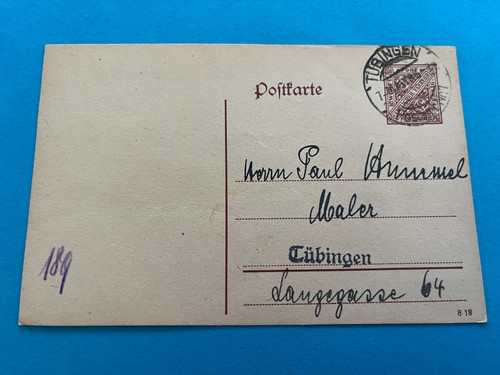 TÜBINGEN
Postkarte
Herrn Paul Hummel
Maler
Tübingen
Langegasse 64
189
8 18